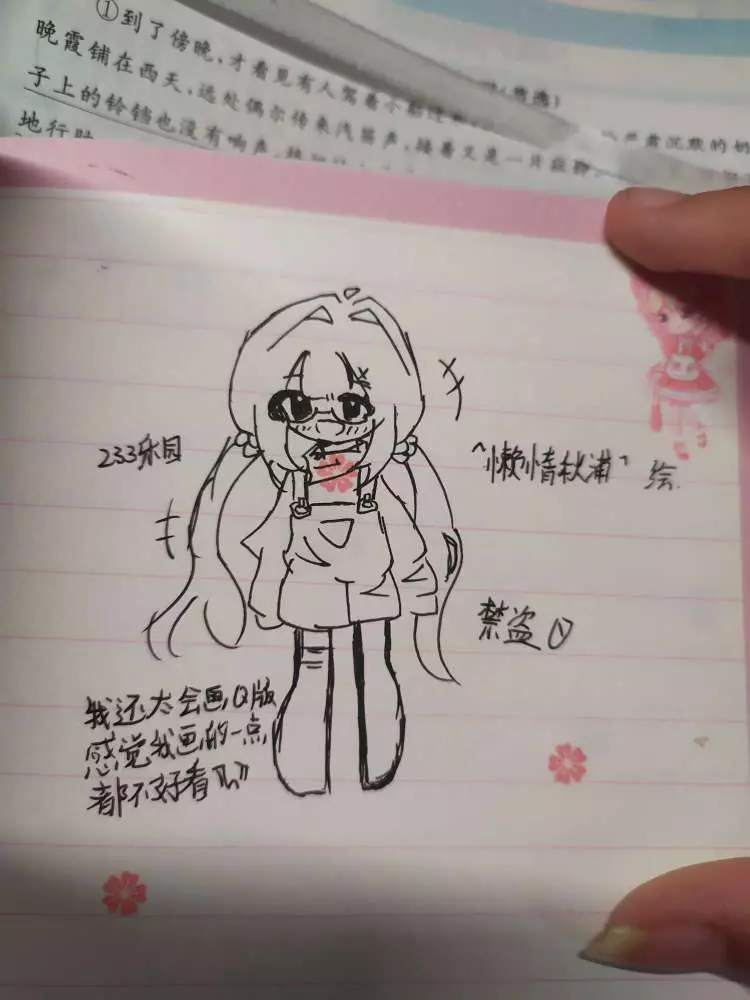 ①到了傍晚，才看见有人驾着小船
晚霞铺在西天，远处偶尔传来汽笛声，接着又是一片寂静
子上的铃铛也没有响声
着沉默的奶
地行
233乐园
"懒惰秋浦" 绘.
禁盗
我还太会画Q版
感觉我画的一点
都不好看